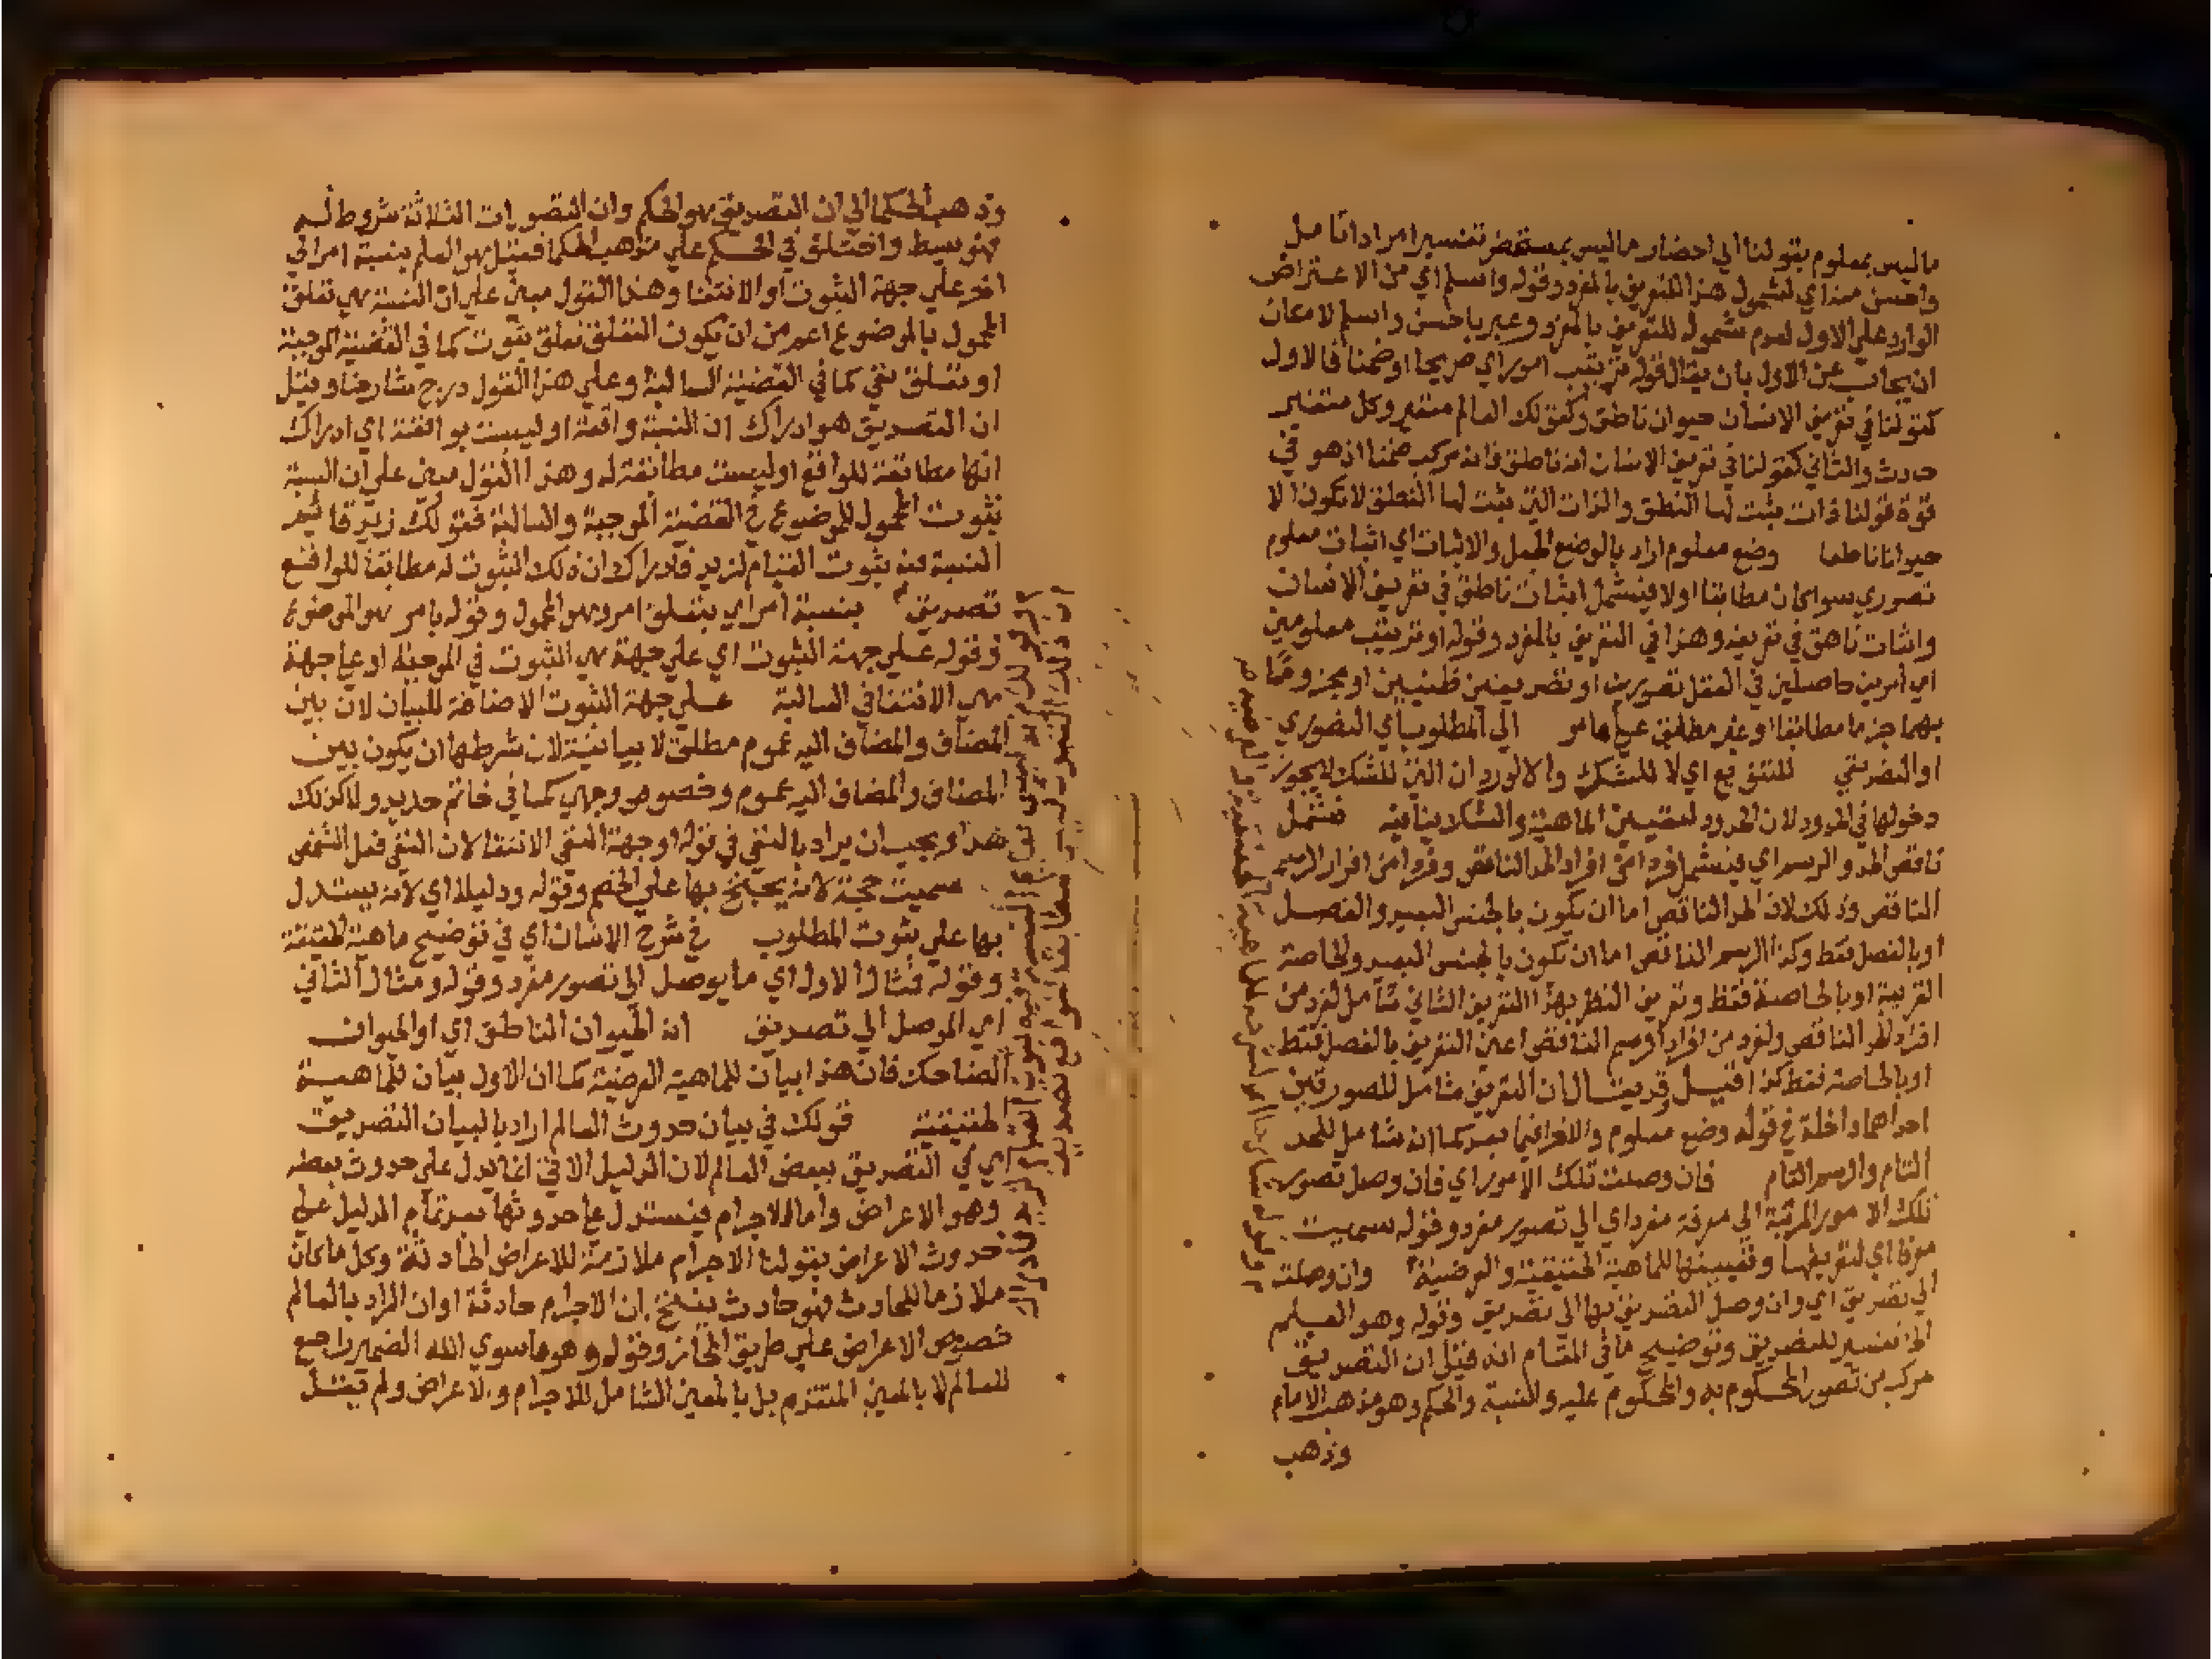 ما ليس بمعلوم بقولنا اي احضار ما ليس بمستحضر تفسير امراد اتامل
واحسن منه اي لشمول هذا التعريف بالمفرد وقوله واسلم اي من الاعتراض
الوارد علي الاول لعدم شموله للتعريف بالمفرد وعبر باحسن واسلم لامكان
ان يجاب عن الاول بان يقال قوله ترتيب امور اي صريحا او ضمنا فالاول
كقولنا في تعريف الانسان حيوان ناطق وكقولك العالم متغير وكل متغير
حادث والثاني كقولنا في تعريف الانسان انه ناطق فانه مركب ضمنا اذ هو في
قوة قولنا ذات ثبت لها النطق والذات التي ثبت لها النطق لا تكون الا
حيوانا ناطقا وضع معلوم اراد بالوضع الحمل والاثبات اي اثبات معلوم
تصوري سوا كان مطابقا اولا فيشمل اثبات ناطق في تعريف الانسان
واثبات ناهق في تعريفه وهذا في التعريف بالمفرد وقوله او ترتيب معلومين
اي امرين حاصلين في العقل تصورين او تصديقين ظنيين او مجزوما
بهما جزما مطابقا او غير مطابق علي ما مر الي المطلوب اي التصوري
او التصديقي للتنويع اي لا للشك والا لورد ان التي للشك لا يجوز
دخولها في الحدود لان الحدود لتبيين الماهية والشك ينافيه فشمل
ناقص الحد والرسم اي فيشمل فردا من افراد الحد الناقص وفردا من افراد الرسم
الناقص وذلك لان الحد الناقص اما ان يكون بالجنس البعيد والفصل
او بالفصل فقط وكذا الرسم الناقص اما ان يكون بالجنس البعيد والخاصة
القريبة او بالخاصة فقط وتعريف النظر بهذا التعريف الثاني شامل لفرد من
افراد الحد الناقص ولفرد من افراد الرسم الناقص اعني التعريف بالفصل فقط
او بالخاصة فقط كذا قيل وقد يقال ان التعريف شامل للصورتين
احداهما داخلة في قوله وضع معلوم والاخرى فيما بعد كما انه شامل للحد
التام والرسم التام فان وصلت تلك الامور اي فان وصل تصور
تلك الامور المرتبة الي معرفة مفرد اي الي تصور مفرد وقوله سميت
معرفا اي لتعريفها وتبيينها للماهية الحقيقية والعرضية وان وصلت
الي تصديق اي وان وصل التصديق بها الي تصديق وقوله وهو العلم
الخ تفسير للتصديق وتوضيح ما في المقام انه قيل ان التصديق
مركب من تصور المحكوم به والمحكوم عليه والنسبة والحكم وهو مذهب الامام
وذهب
وذهب الحكما الي ان التصديق هو الحكم وان التصورات الثلاثة شروط له
فهو بسيط واختلف في الحكم علي مذاهب الحكما فقيل هو العلم بنسبة امر الي
اخر علي جهة الثبوت او الانتفا وهذا القول مبني علي ان النسبة هي تعلق
المحمول بالموضوع اعم من ان يكون التعلق تعلق ثبوت كما في القضية الموجبة
او تعلق نفي كما في القضية السالبة وعلي هذا القول درج شارحنا وقيل
ان التصديق هو ادراك ان النسبة واقعة او ليست بواقعة اي ادراك
انها مطابقة للواقع او ليست مطابقة له وهذا القول مبني علي ان النسبة
ثبوت المحمول للموضوع في القضية الموجبة والسالبة فقولك زيد قائم
النسبة فيه ثبوت القيام لزيد فادراك ان ذلك الثبوت له مطابقا للواقع
تصديق بنسبة امر اي بتعلق امر وهو المحمول وقوله بامر هو الموضوع
وقوله علي جهة الثبوت اي علي جهة هي الثبوت في الموجبة او علي جهة
هي الانتفا في السالبة علي جهة الثبوت الاضافة للبيان لان بين
المضاف والمضاف اليه عموم مطلق لا بيانية لان شرطها ان يكون بين
المضاف والمضاف اليه عموم وخصوص وجهي كما في خاتم حديد ولا كذلك
هذا ويجب ان يراد بالنفي في قوله او جهة النفي الانتفا لان النفي فعل الشخص
سميت حجة لانه يحتج بها علي الخصم وقوله ودليلا اي لانه يستدل
بها علي ثبوت المطلوب في شرح الانسان اي في توضيح ماهية الحقيقة
وقوله فمثال الاول اي ما يوصل الي تصور مفرد وقوله ومثال الثاني
اي الموصل الي تصديق انه الحيوان الناطق اي او الحيوان
الضاحك فان هذا بيان للماهية العرضية كما ان الاول بيان للماهية
الحقيقية قولك في بيان حدوث العالم اراد بالبيان التصديق
اي في التصديق ببعض العالم لان الدليل الاتي انما يدل علي حدوث بعضه
وهو الاعراض واما الاجرام فيستدل علي حدوثها بعد تمام الدليل علي
حدوث الاعراض بقولنا الاجرام ملازمة للاعراض الحادثة وكل ما كان
ملازما للحادث فهو حادث ينتج ان الاجرام حادثة او ان المراد بالعالم
خصوص الاعراض علي طريق المجاز وقوله وهو ما سوي الله الضمير راجع
للعالم لا بالمعني المتقدم بل بالمعني الشامل للاجرام والاعراض ولم يقل